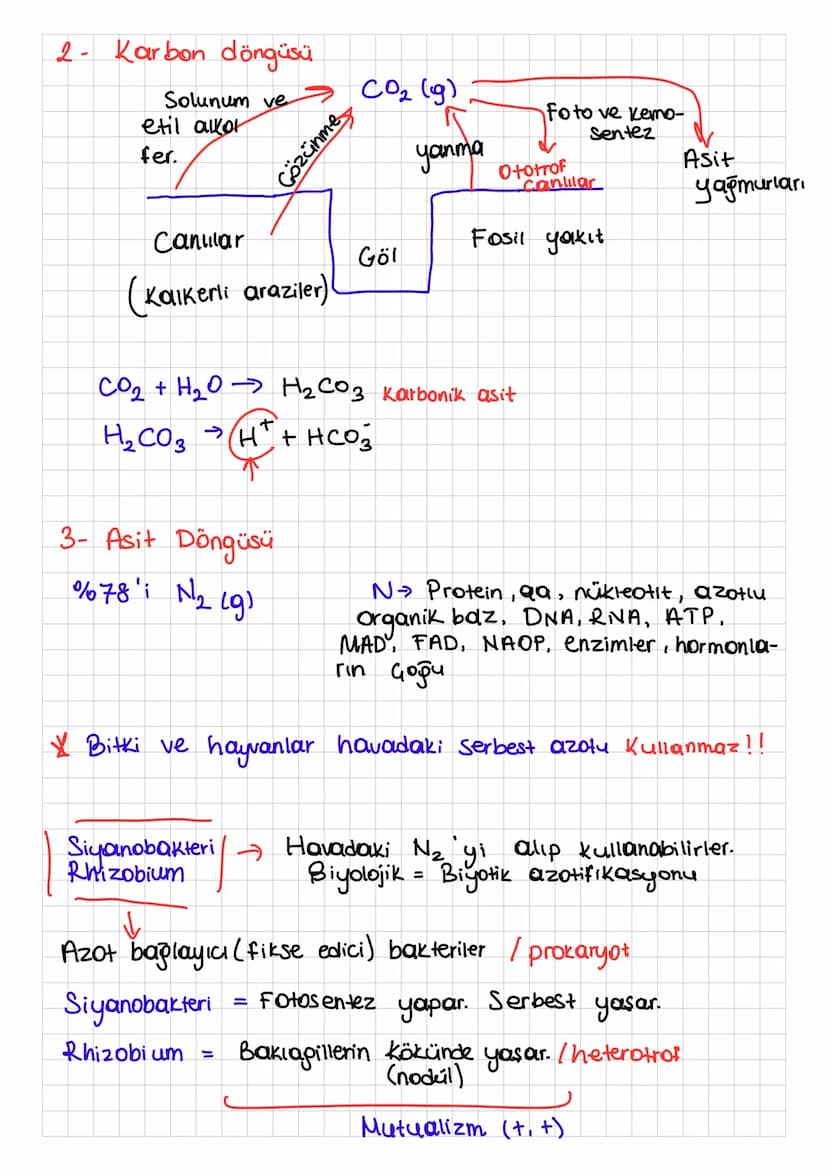 2- Karbon döngüsü
CO₂ (g)
Solunum ve
etil alkol
fer.
Çözünme
yanma
Foto ve kemo-
sentez
Ototrof
canlılar
Asit
yağmurları
Canlılar
(Kalkerli araziler)
Göl
Fosil yakıt
CO₂ + H₂O → H₂CO₃ Karbonik asit
H₂CO₃ → H⁺ + HCO₃⁻
3- Asit Döngüsü
%78'i N₂ (g)
N→ Protein, aa, nükleotit, azotlu
organik baz, DNA, RNA, ATP,
MAD, FAD, NAOP, enzimler, hormonla-
rın çoğu
* Bitki ve hayvanlar havadaki serbest azotu Kullanmaz!!
Siyanobakteri
Rhizobium
→ Havadaki N₂'yi alıp kullanabilirler.
Biyolojik = Biyotik azotifikasyonu
Azot bağlayıcı (fikse edici) bakteriler / prokaryot
Siyanobakteri = Fotosentez yapar. Serbest yaşar.
Rhizobium = Baklagillerin kökünde yaşar. / heterotrof
(nodül)
Mutualizm (+,+)